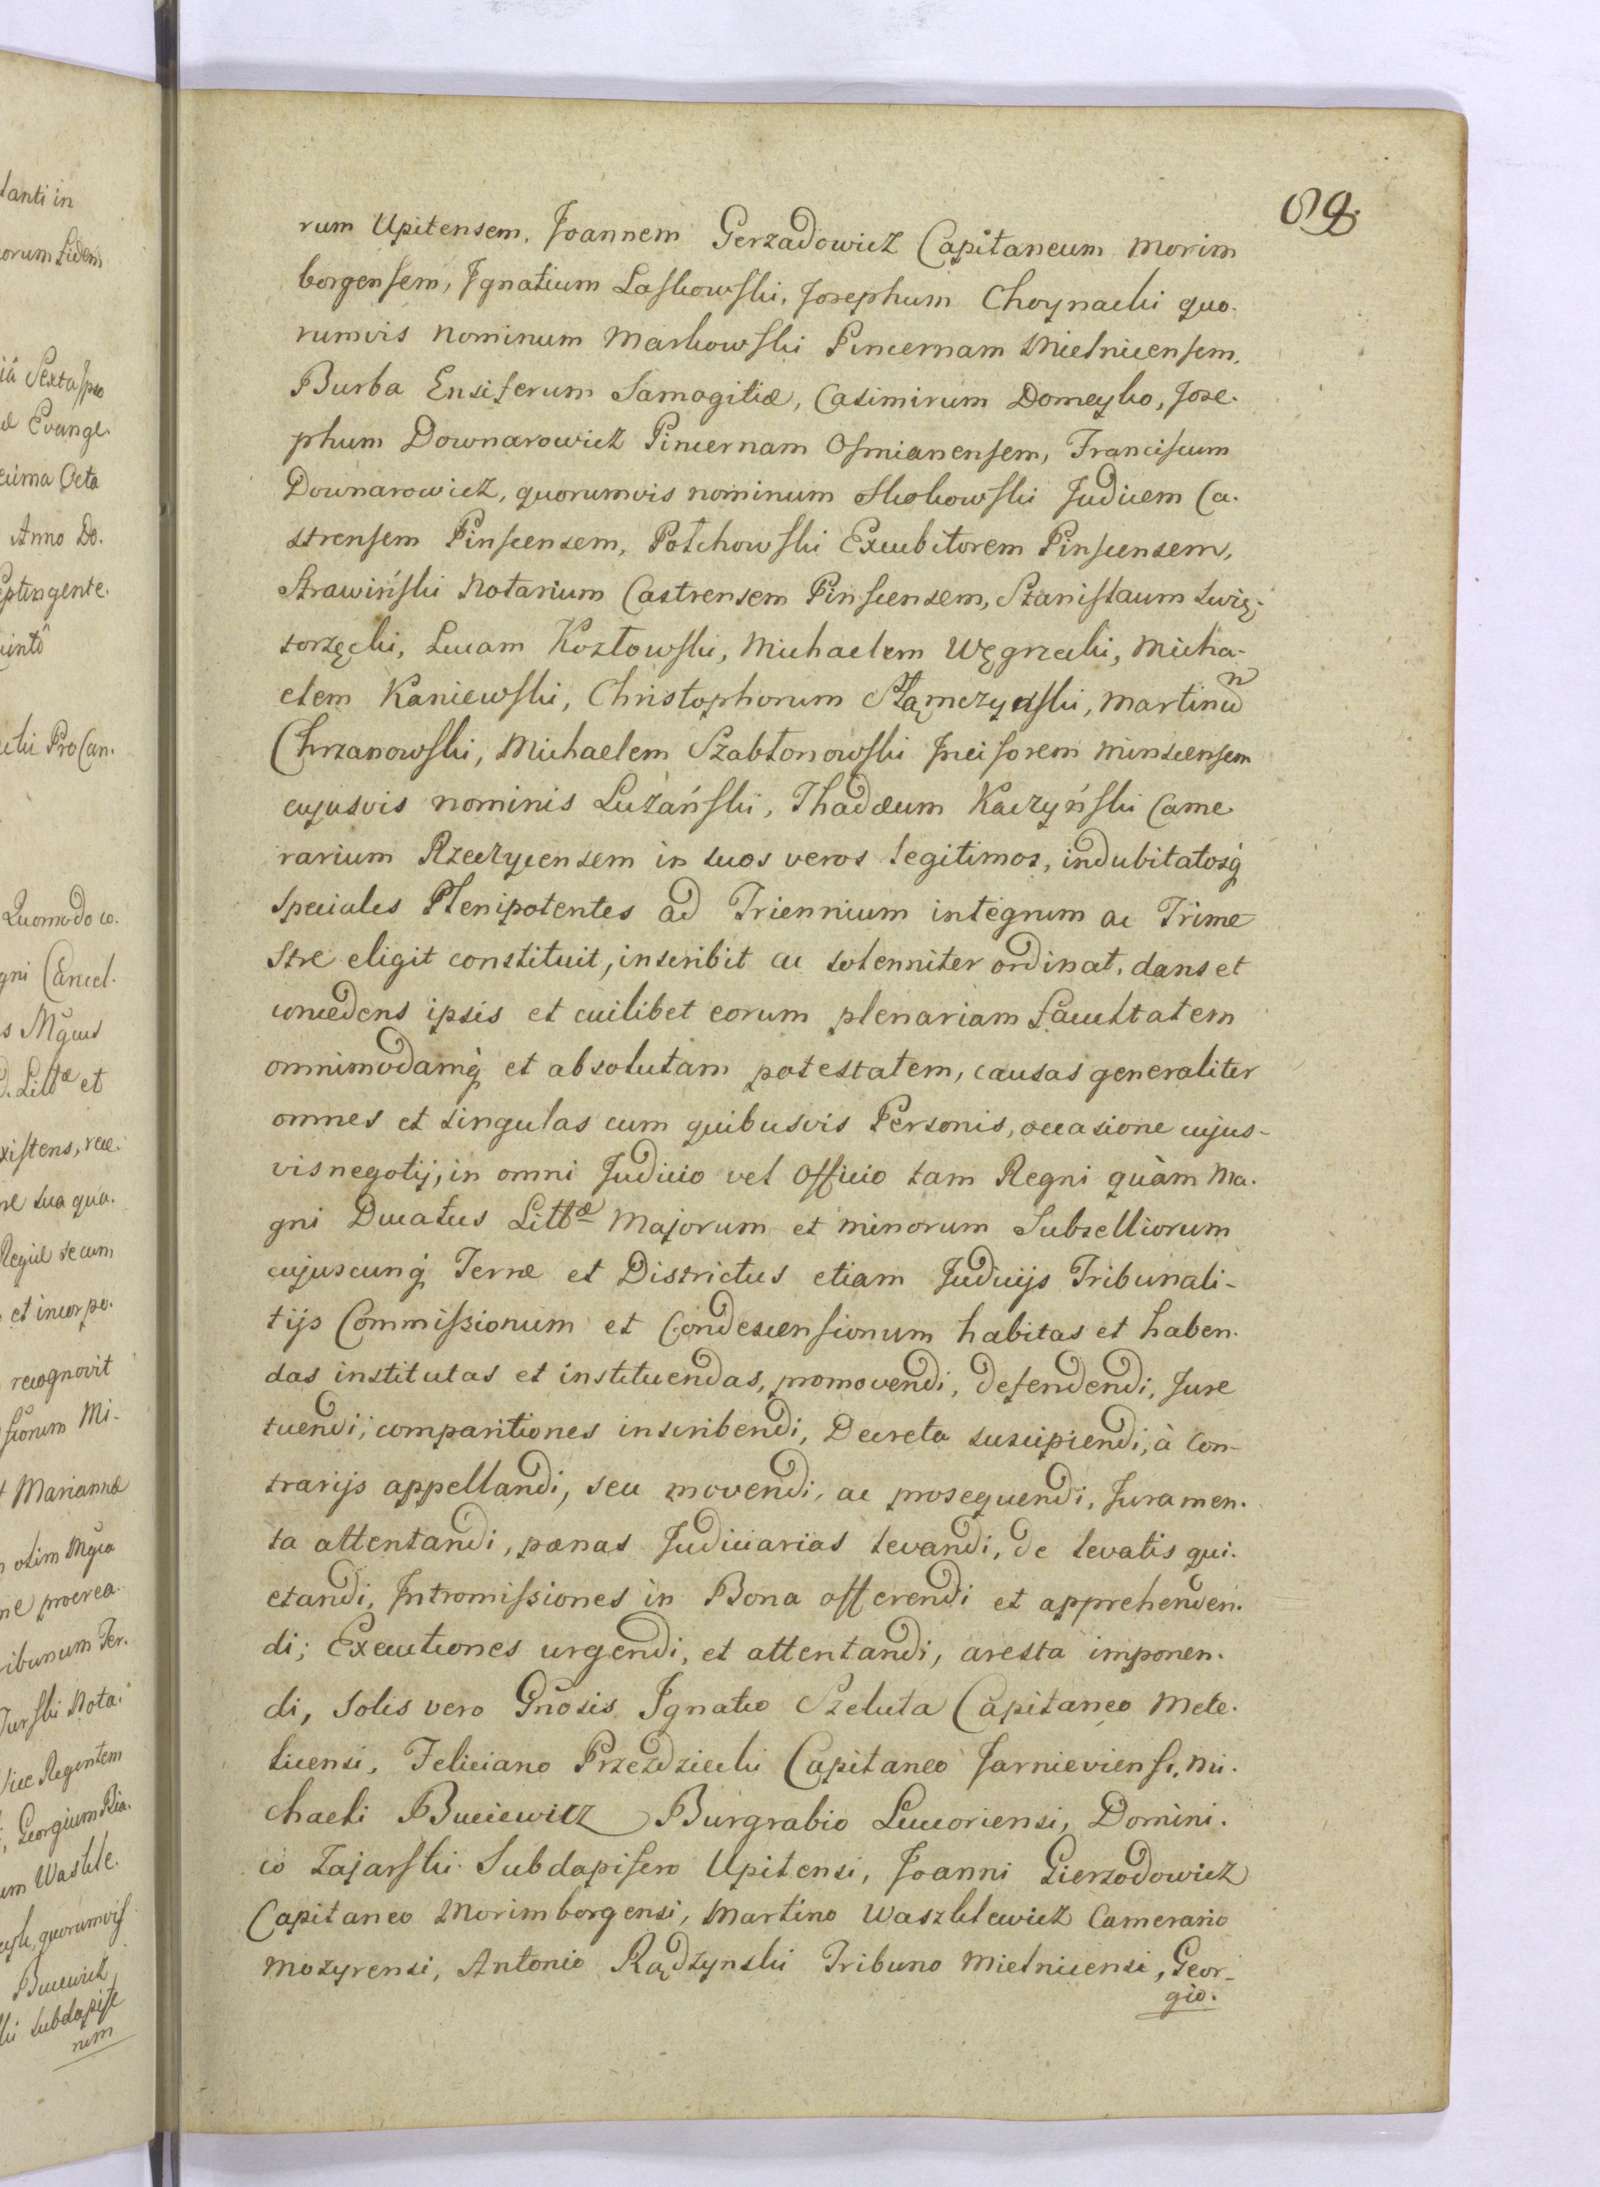 69.
rum Upitensem, Joannem Gerzadowicz Capitaneum Morim
borgensem, Ignatium Laskowski, Josephum Choynacki quo-
rumvis nominum Markowski Pincernam Mielnicensem,
Burba Ensiferum Samogitiæ, Casimirum Domeyko, Jose-
phum Downarowicz Pincernam Osmianensem, Franciscum
Downarowicz, quorumvis nominum Skokowski Judicem Ca-
strensem Pinscensem, Potchowski Excubitorem Pinscensem,
Strawiński Notarium Castrensem Pinscensem, Stanisłaum Swię-
torzęcki, Lucam Kozłowski, Michaelem Węgrzecki, Micha-
elem Kaniewski, Christophorum Słamczyński, Martinum
Chrzanowski, Michaelem Szabłonowski Incisorem Minscensem
cujusvis nominis Lużański, Thadæum Kaczyński Came
rarium Rzeczycensem in suos veros legitimos, indubitatosq́
speciales Plenipotentes ad Triennium integrum ac Trime
stre eligit constituit, inscribit ac solenniter ordinat, dans et
concedens ipsis et cuilibet eorum plenariam facultatem
omnimodamq́ et absolutam potestatem, causas generaliter
omnes et singulas cum quibusvis Personis, occasione cujus-
vis negotij, in omni Judicio vel Officio tam Regni quàm Ma-
gni Ducatus Littæ Majorum et minorum Subselliorum
cujuscunq́ Terræ et Districtus etiam Judicijs Tribunali-
tijs Commissionum et Condescensionum habitas et haben-
das institutas et instituendas, promovendi, defendendi, Jure
tuendi, comparitiones inscribendi, Decreta suscipiendi, à Con-
trarijs appellandi, seu movendi, ac prosequendi, Juramen-
ta attentandi, pænas Judiciarias levandi, de levatis qui-
etandi, Intromissiones in Bona offerendi et apprehenden-
di; Executiones urgendi, et attentandi, aresta imponen-
di, solis vero Gnosis Ignatio Szeluta Capitaneo Mete-
licensi, Feliciano Przezdziecki Capitaneo Jarnieviensi, Mi-
chaeli Buciewicz Burgrabio Luceoriensi, Domini-
co Zajarski Subdapifero Upitensi, Joanni Gierzodowicz
Capitaneo Morimborgensi, Martino Waszklewicz Camerario
Mozyrensi, Antonio Rądzynski Tribuno Mielnicensi, Geor-
gio.